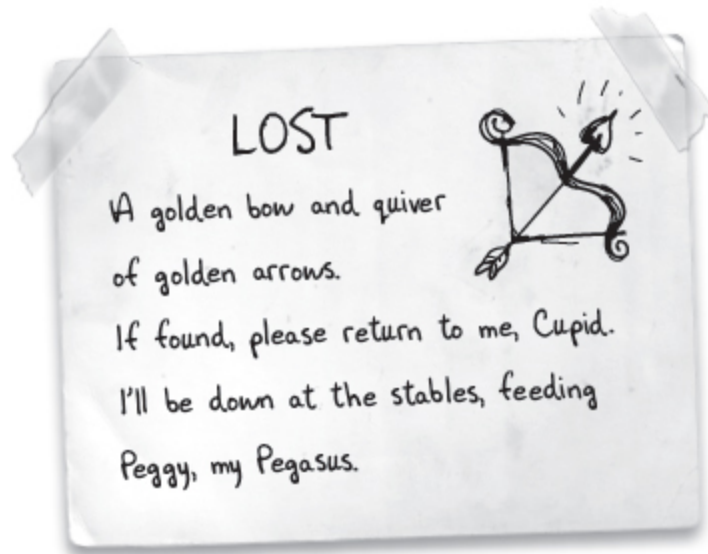 LOST
A golden bow and quiver
of golden arrows.
If found, please return to me, Cupid.
I'll be down at the stables, feeding
Peggy, my Pegasus.